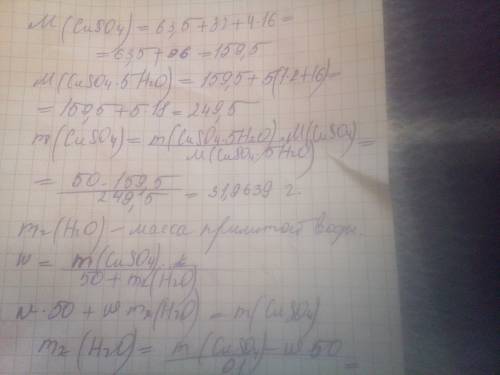 M(CuSO₄) = 63,5 + 32 + 4·16 =
= 63,5 + 96 = 159,5
M(CuSO₄·5H₂O) = 159,5 + 5(1·2+16) =
= 159,5 + 5·18 = 249,5
m(CuSO₄) = m(CuSO₄·5H₂O)·M(CuSO₄) / M(CuSO₄·5H₂O) =
= 50·159,5 / 249,5 = 31,9639 г.
m₂(H₂O) – масса прилитой воды.
w = m(CuSO₄) / 50 + m₂(H₂O)
w·50 + w m₂(H₂O) = m(CuSO₄)
m₂(H₂O) = m(CuSO₄) – w 50 / 0,1 =